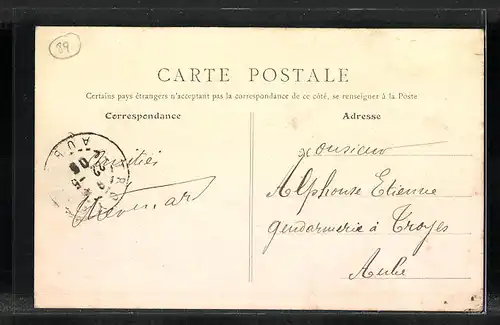 89
CARTE POSTALE
Certains pays étrangers n'acceptant pas la correspondance de ce côté, se renseigner à la Poste
Correspondance
Adresse
Amitiés
Monsieur
Alphonse Etienne
Gendarmerie à Troyes
Aube
AUB